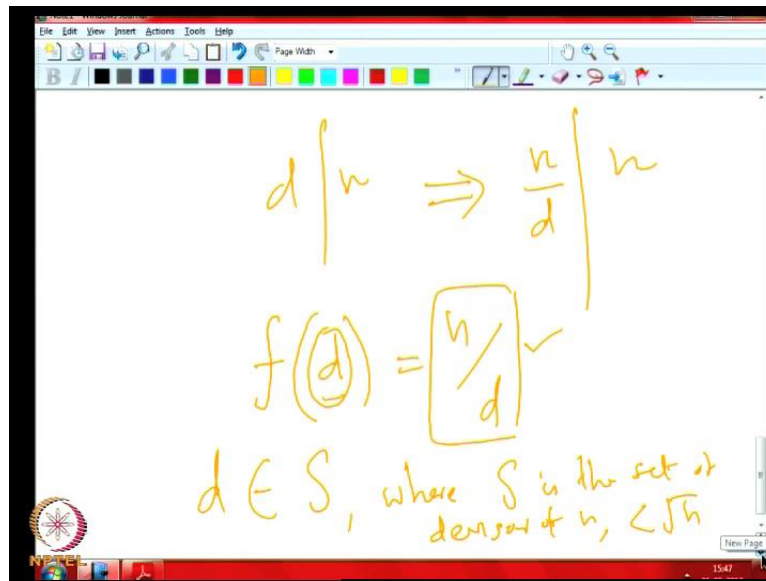 File Edit View Insert Actions Tools Help
Page Width
B I
d | n ⇒ n/d | n
f(d) = n/d ✓
d ∈ S, where S is the set of
devisor of n, < √n
New Page
NPTEL
15:47